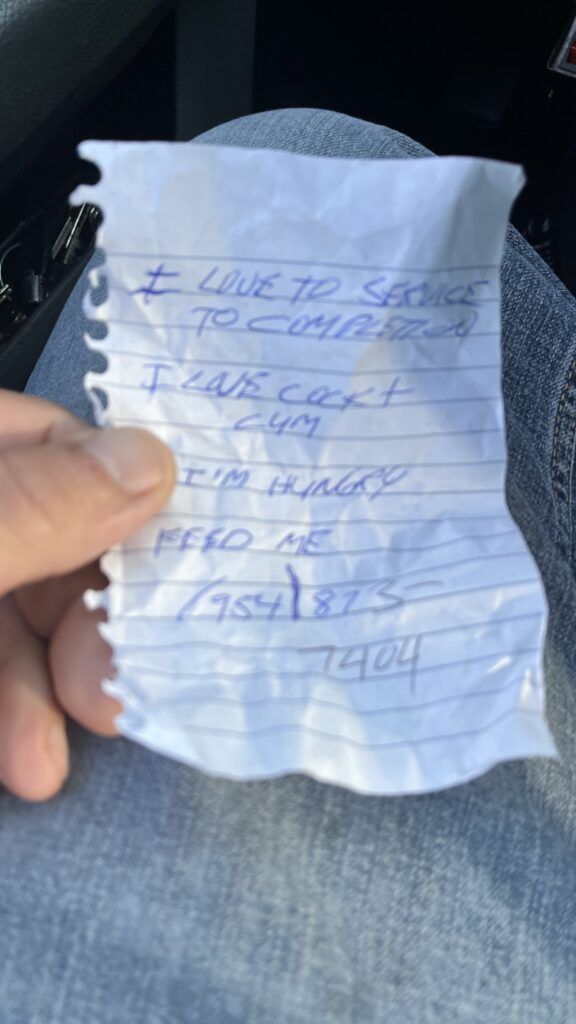 I LOVE TO SERVICE
TO COMPLETION
I LOVE COCK +
CUM
I'M HUNGRY
FEED ME
(954) 873-
7404